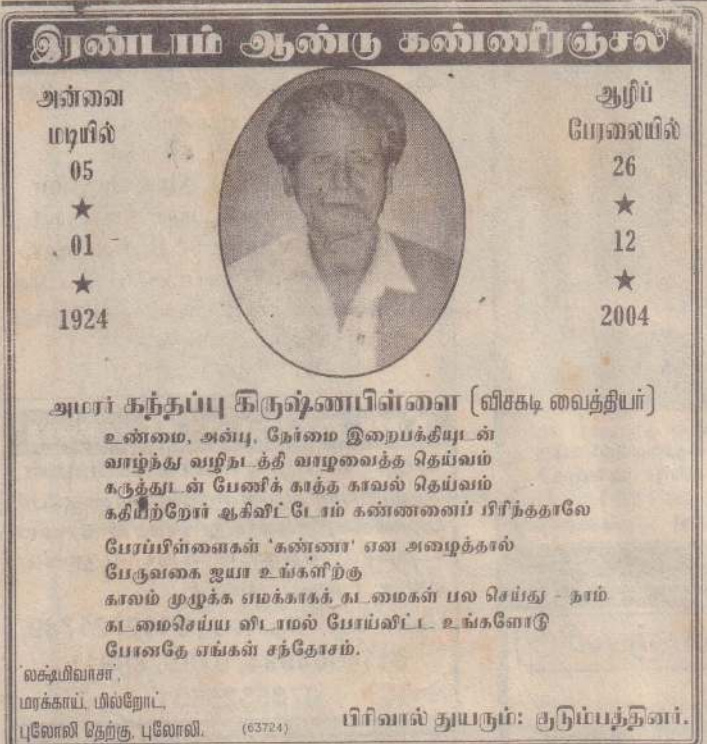 இரண்டாம் ஆண்டு கண்ணீரஞ்சலி
அன்னை
மடியில்
05
★
01
★
1924
ஆழிப்
பேரலையில்
26
★
12
★
2004
அமரர் கந்தப்பு கிருஷ்ணபிள்ளை (விசகடி வைத்தியர்)
உண்மை, அன்பு, நேர்மை இறைபக்தியுடன்
வாழ்ந்து வழிநடத்தி வாழவைத்த தெய்வம்
கருத்துடன் பேணிக் காத்த காவல் தெய்வம்
கதியற்றோர் ஆகிவிட்டோம் கண்ணனைப் பிரிந்ததாலே
பேரப்பிள்ளைகள் 'கண்ணா' என அழைத்தால்
பேருவகை ஐயா உங்களிற்கு
காலம் முழுக்க எமக்காகக் கடமைகள் பல செய்து - நாம்
கடமைசெய்ய விடாமல் போய்விட்ட உங்களோடு
போனதே எங்கள் சந்தோசம்.
'லக்ஷ்மிவாசா',
மரக்காய், மில்றோட்,
புலோலி தெற்கு, புலோலி. (63724)
பிரிவால் துயரும்: குடும்பத்தினர்.